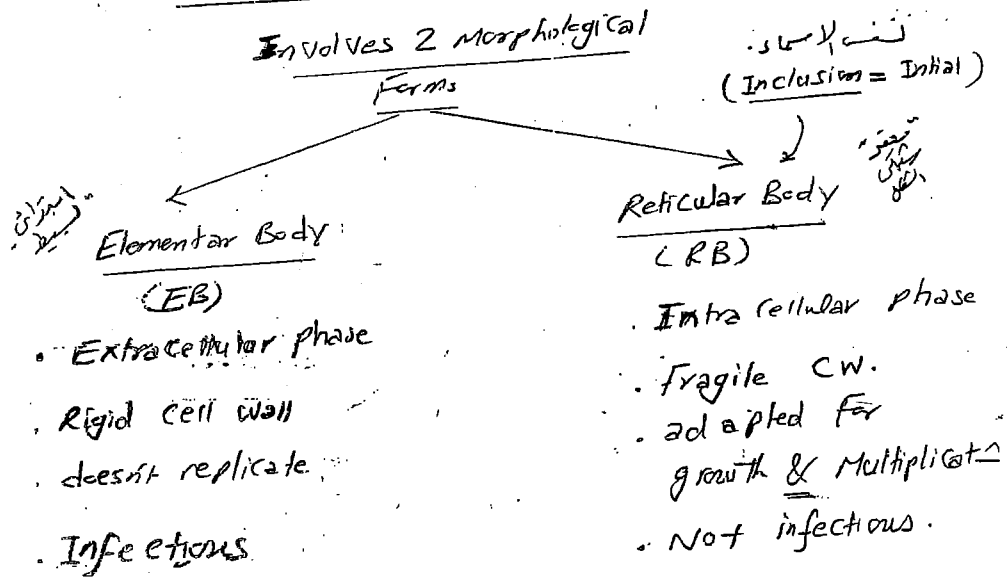 Involves 2 Morphological
Forms
(Inclusion = Intial)
Elementar Body:
(EB)
• Extracellular phase
• Rigid cell wall
• doesn't replicate
• Infectious
Reticular Body
(RB)
• Intra cellular phase
• Fragile CW.
• adapted For
growth & Multiplicatn
• Not infectious.